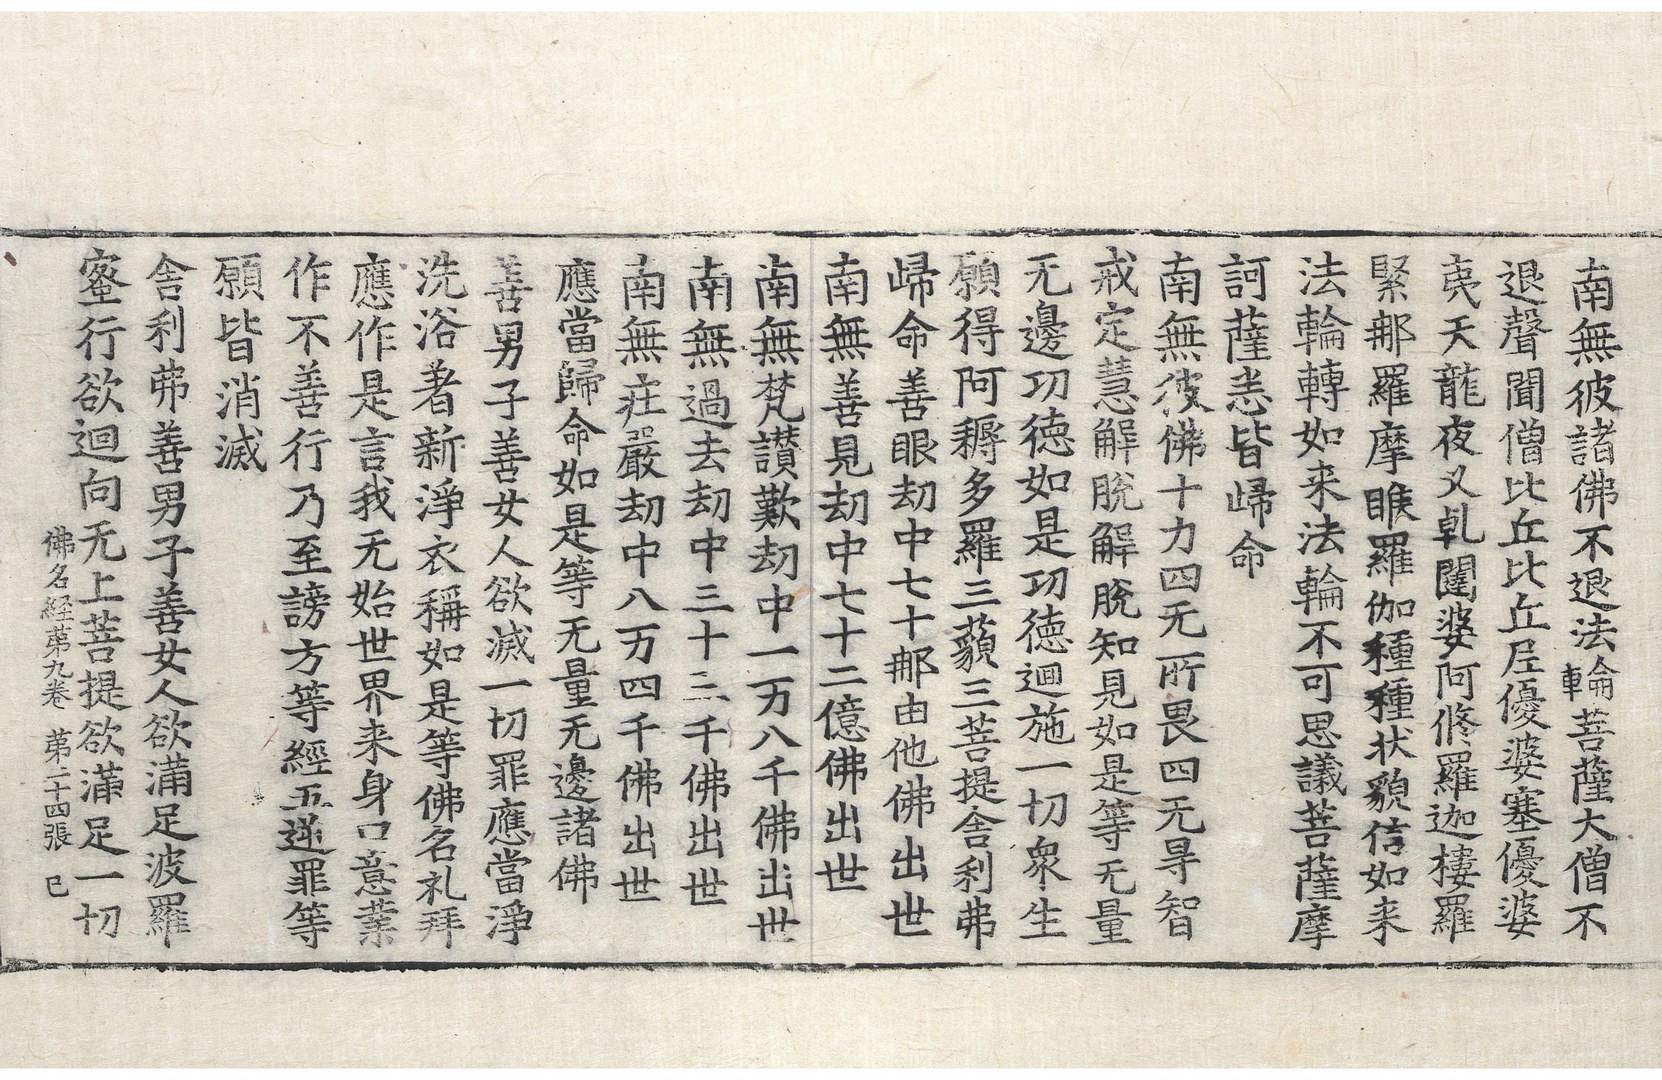 南無彼諸佛不退法輪菩薩大僧不
退聲聞僧比丘比丘尼優婆塞優婆
夷天龍夜叉乹闥婆阿修羅迦樓羅
緊那羅摩睺羅伽種種狀貌信如来
法輪轉如来法輪不可思議菩薩摩
訶薩悉皆歸命
南無彼佛十力四无所畏四无㝵智
戒定慧解脫解脫知見如是等无量
无邊功德如是功德迴施一切衆生
願得阿耨多羅三藐三菩提舎利弗
歸命善眼劫中七十那由他佛出世
南無善見劫中七十二億佛出世
南無梵讃歎劫中一万八千佛出世
南無過去劫中三十三千佛出世
南無莊嚴劫中八万四千佛出世
應當歸命如是等无量无邊諸佛
善男子善女人欲滅一切罪應當淨
洗浴著新淨衣稱如是等佛名礼拜
應作是言我无始世界来身口意業
作不善行乃至謗方等經五逆罪等
願皆消滅
舎利弗善男子善女人欲滿足波羅
蜜行欲迴向无上菩提欲滿足一切
佛名経苐九卷 苐二十四張 已